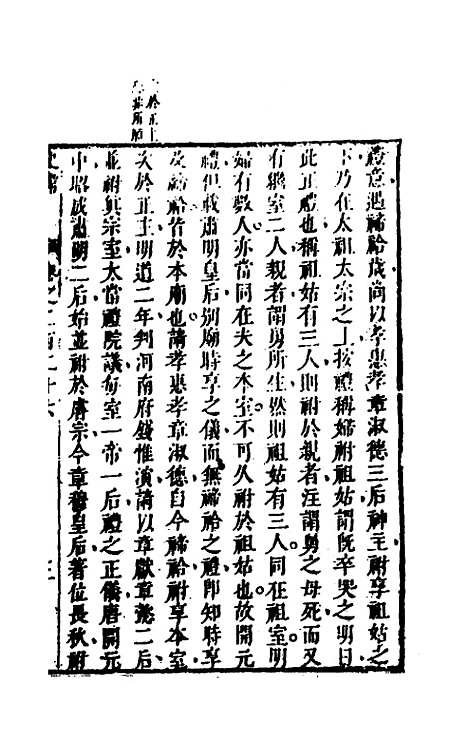 禮意遇禘祫歲尚以孝惠孝章淑德三后神主祔享祖姑之
下乃在太祖太宗之上按禮稱婦祔祖姑謂既卒哭之明日
此正禮也稱祖姑有三人則祔於親者注謂舅之母死而又
有繼室二人親者謂舅所生然則祖姑有三人同在祖室明
婦有數人亦當同在夫之本室不可久祔於祖姑也故開元
禮但載肅明皇后別廟時享之儀而無禘祫之禮卽知時享
及禘祫皆於本廟也請孝惠孝章淑德自今禘祫祔享本室
次於正主明道二年判河南府錢惟演請以章獻章懿二后
並祔眞宗室太常禮院議每室一帝一后禮之正儀唐開元
中昭成肅明二后始並祔於睿宗今章穆皇后著位長秋祔
卷之二百二十六